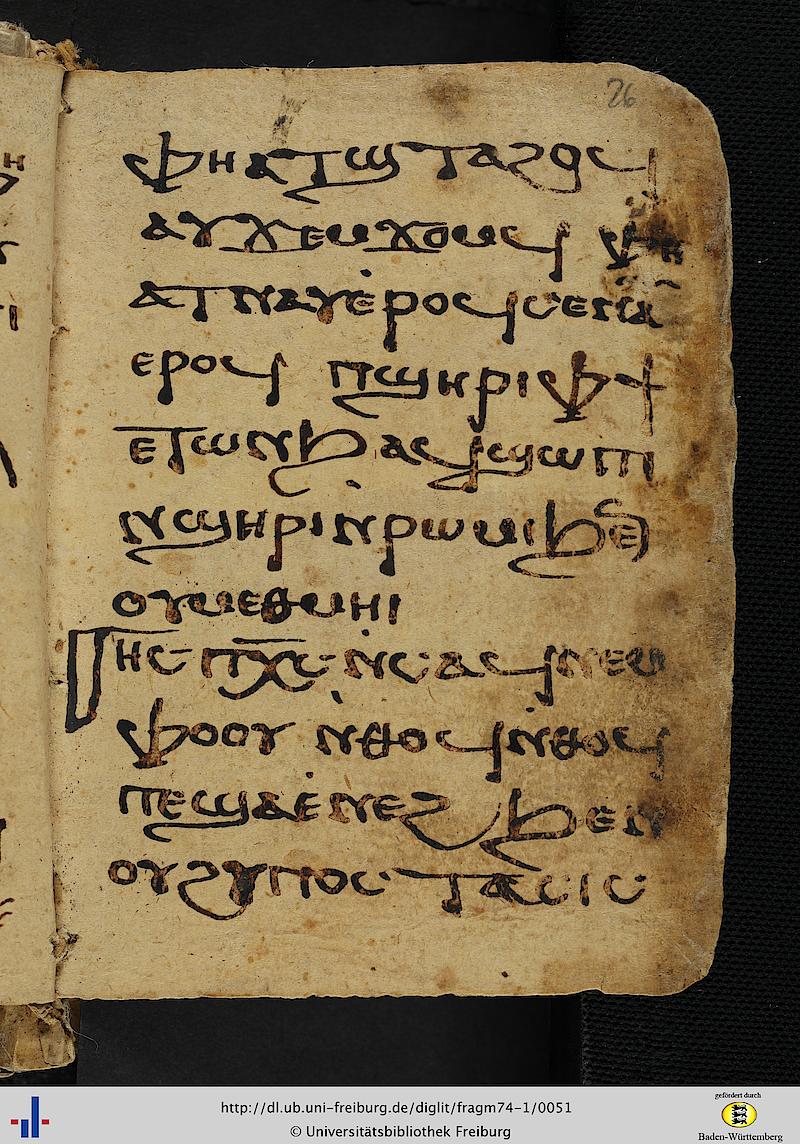 ⲫⲏⲁⲧϣⲧⲁϩⲟϥ
ⲁⲩϫⲉⲙϫⲟⲙϥ ⲫⲏ
ⲁⲧⲛⲁⲩⲉ̀ⲣⲟϥ ⲥⲉⲛⲁ
ⲉⲣⲟϥ ⲡϣⲏⲣⲓⲫϯ
ⲉⲧⲱⲛϧ ⲁϥϣⲱⲡ
ⲛϣⲏⲣⲓ ⲛ̀ⲣⲱⲙⲓ ϧⲉ̅
ⲟⲩⲙⲉⲑⲙⲏⲓ
ⲓⲏⲥ ⲡⲭ̅ⲥ̅ ⲛ̀ⲥⲁϥ ⲛⲉⲙ
ⲫⲟⲟⲩ ⲛ̀ⲑⲟϥ ⲛ̀ⲑⲟϥ
ⲡⲉϣⲁⲉ̀ⲛⲉϩ ϧⲉⲛ
ⲟⲩϩⲩⲡⲟⲥⲧⲁⲥⲓⲥ
26
http://dl.ub.uni-freiburg.de/diglit/fragm74-1/0051
© Universitätsbibliothek Freiburg
gefördert durch
Baden-Württemberg